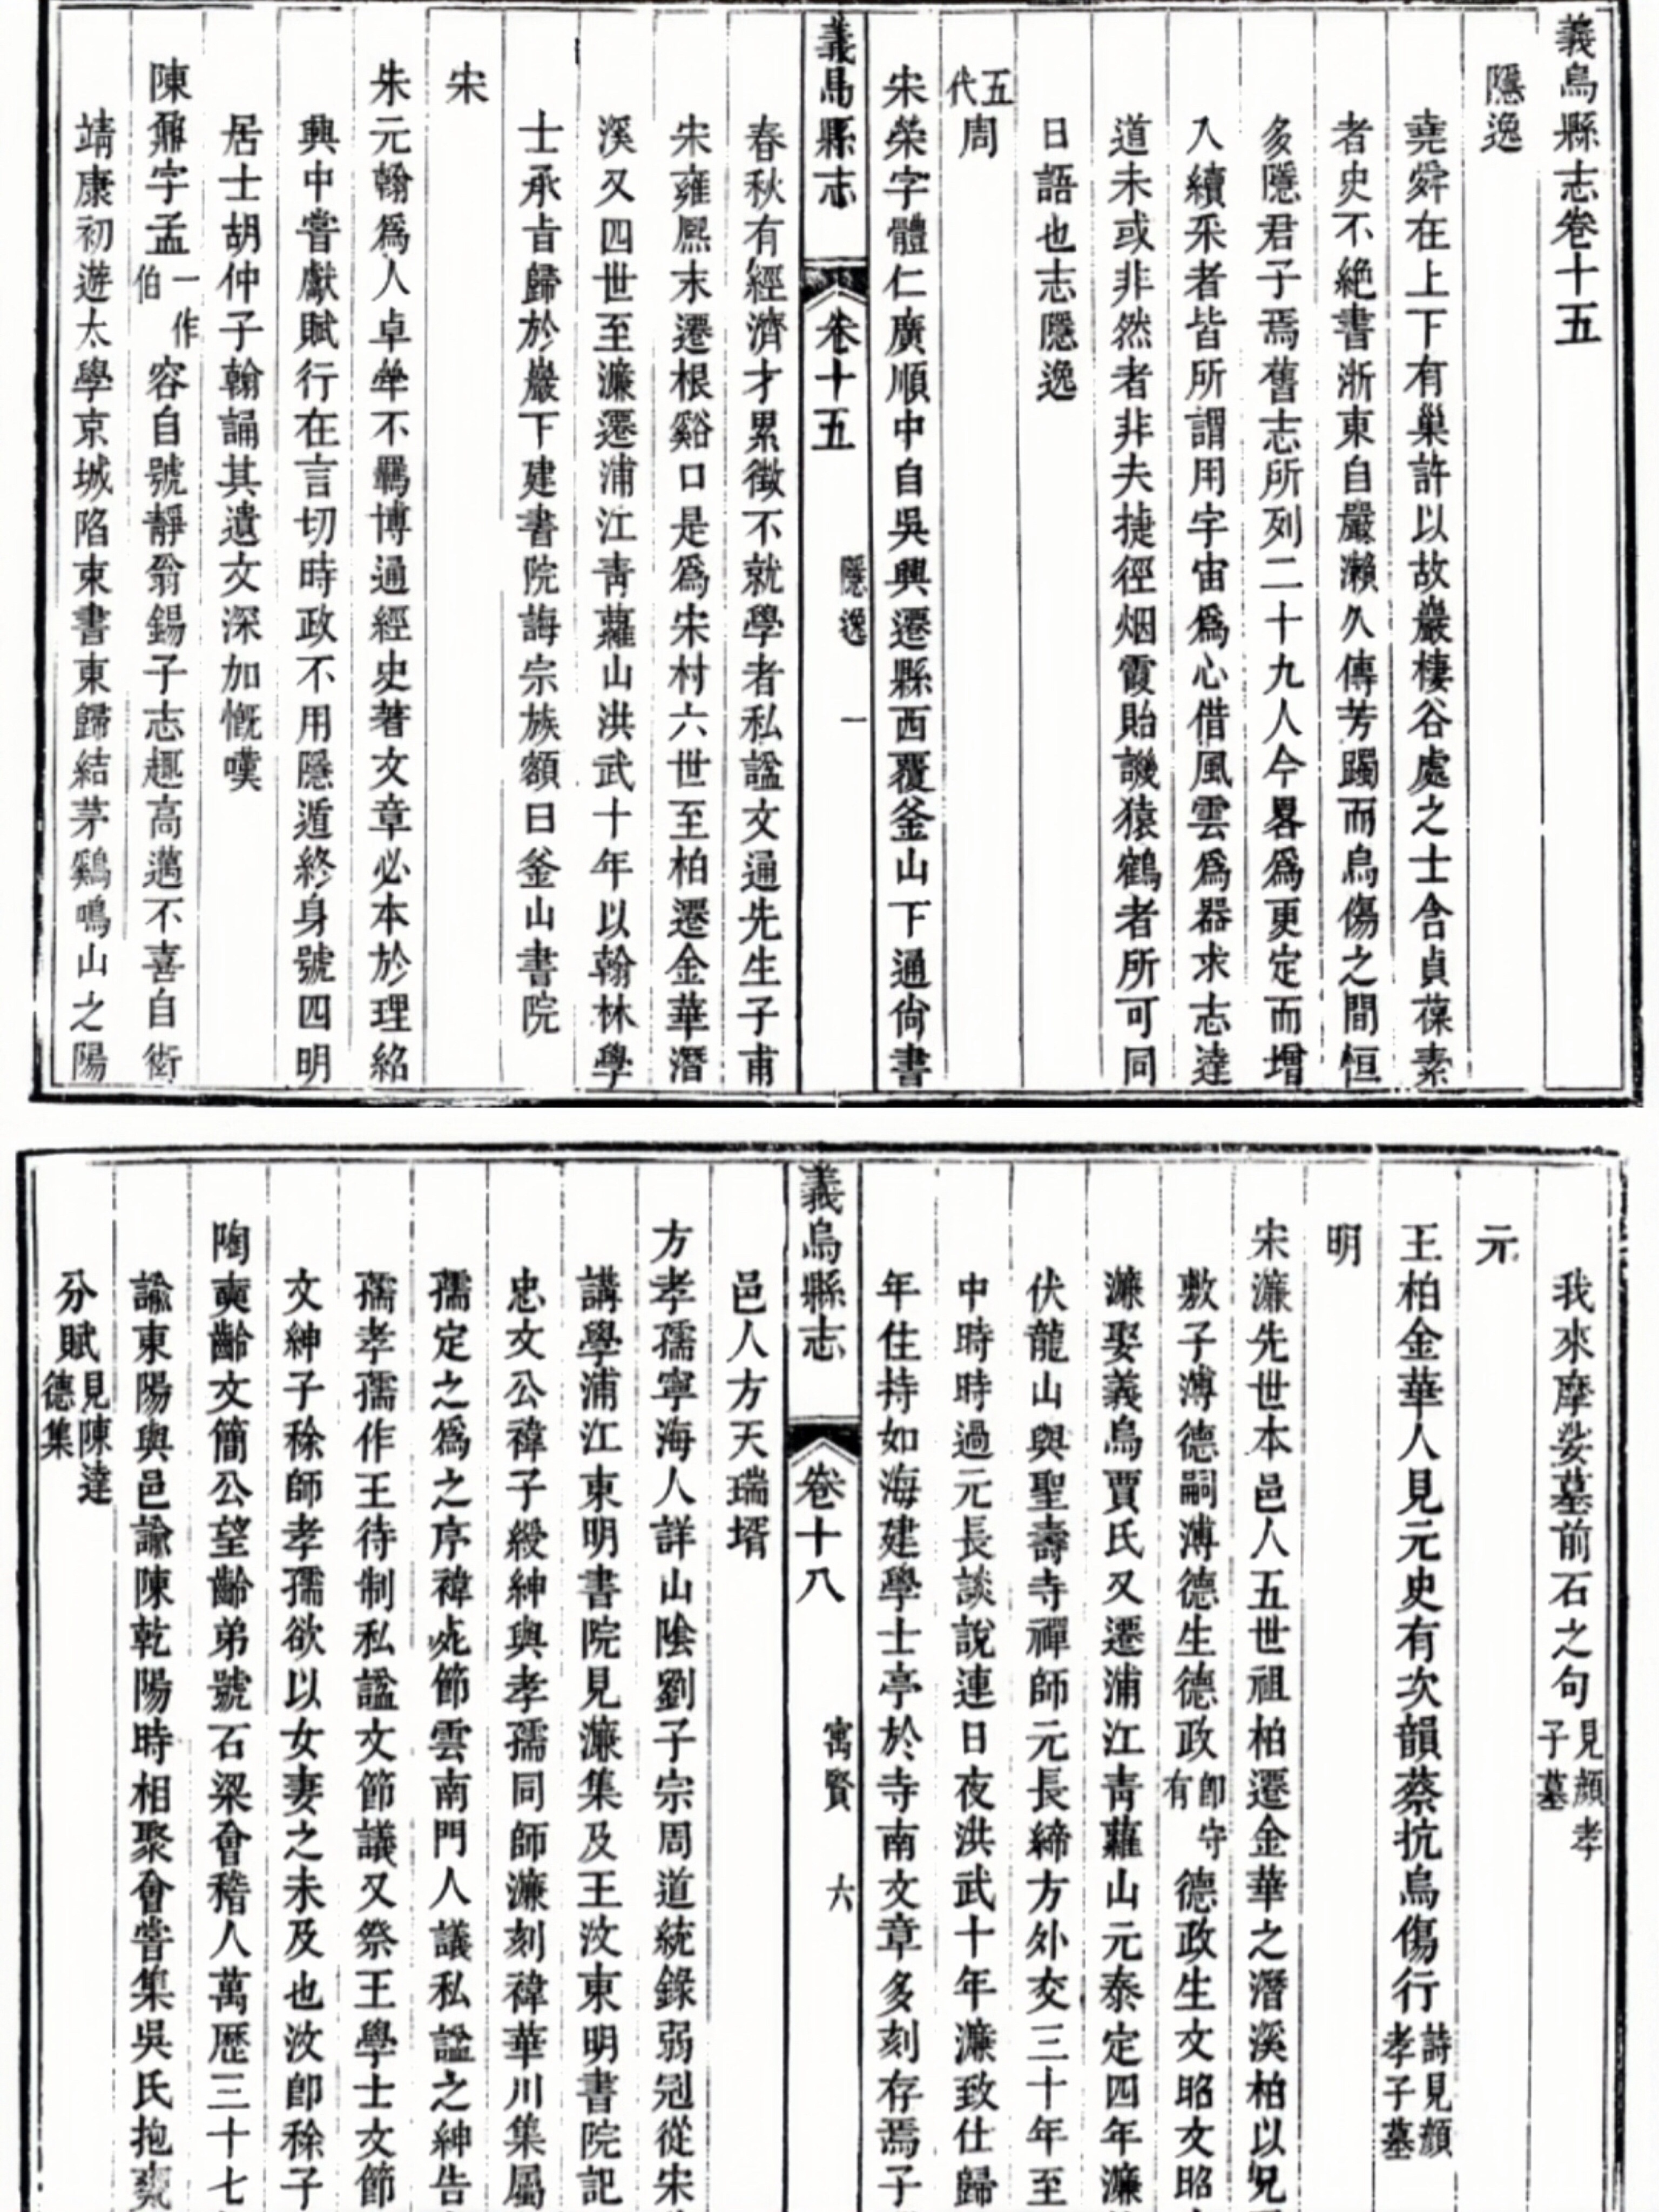 義烏縣志卷十五
隱逸
堯舜在上下有巢許以故巖棲谷處之士含貞葆素
者史不絶書浙東自嚴瀨久傳芳躅而烏傷之間恒
多隱君子焉舊志所列二十九人今畧爲更定而增
入續采者皆所謂用宇宙爲心借風雲爲器求志達
道未或非然者非夫捷徑烟霞貽譏猿鶴者所可同
日語也志隱逸
五代周
宋榮字體仁廣順中自吳興遷縣西覆釜山下通尙書
義烏縣志 卷十五 隱逸 一
春秋有經濟才累徵不就學者私諡文通先生子甫
宋雍熙末遷根谿口是爲宋村六世至柏遷金華潛
溪又四世至濂遷浦江靑蘿山洪武十年以翰林學
士承旨歸於巖下建書院誨宗族額曰釜山書院
宋
朱元翰爲人卓犖不羈博通經史著文章必本於理紹
興中嘗獻賦行在言切時政不用隱遁終身號四明
居士胡仲子翰誦其遺文深加慨嘆
陳鼐字孟一作伯容自號靜翁錫子志趣高邁不喜自衒
靖康初遊太學京城陷束書東歸結茅鷄鳴山之陽
我來摩娑墓前石之句見顔孝子墓
元
王柏金華人見元史有次韻蔡抗烏傷行詩見顔孝子墓
明
宋濂先世本邑人五世祖柏遷金華之潛溪柏以兄
敷子溥德嗣溥德生德政卽守有德政生文昭文昭
濂娶義烏賈氏又遷浦江靑蘿山元泰定四年濂
伏龍山與聖壽寺禪師元長締方外交三十年至
中時時過元長談說連日夜洪武十年濂致仕歸
年住持如海建學士亭於寺南文章多刻存焉子
義烏縣志 卷十八 寓賢 六
邑人方天瑞壻
方孝孺寧海人詳山陰劉子宗周道統錄弱冠從宋
講學浦江東明書院見濂集及王汶東明書院記
忠文公禕子綬紳與孝孺同師濂刻禕華川集屬
孺定之爲之序禕死節雲南門人議私諡之紳告
孺孝孺作王待制私諡文節議又祭王學士文節
文紳子稌師孝孺欲以女妻之未及也汶卽稌子
陶奭齡文簡公望齡弟號石梁會稽人萬歷三十七
諭東陽與邑諭陳乾陽時相聚會嘗集吳氏抱甕
分賦見陳達德集